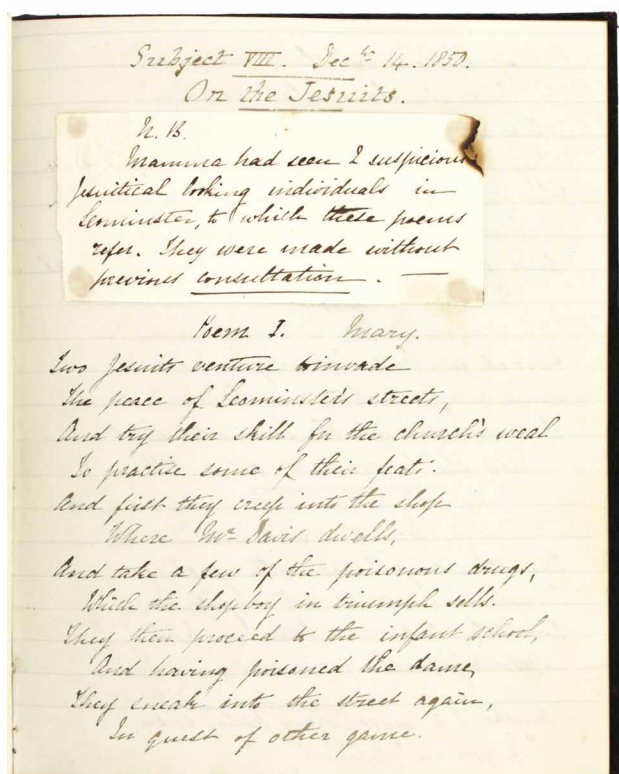 Subject VIII. Decbr 14. 1850.
On the Jesuits.
N.B.
Mamma had seen 2 suspicious
Jesuitical looking individuals in
Leominster, to which these poems
refer. They were made without
previous consultation. —
Poem I. Mary.
Two Jesuits venture to invade
The peace of Leominster's streets,
And try their skill for the church's weal
To practise some of their feats.
And first they creep into the shop
Where Mr Davis dwells,
And take a few of the poisonous drugs,
Which the shopboy in triumph sells.
They then proceed to the infant school,
And having poisoned the dame,
They sneak into the street again,
In quest of other game.